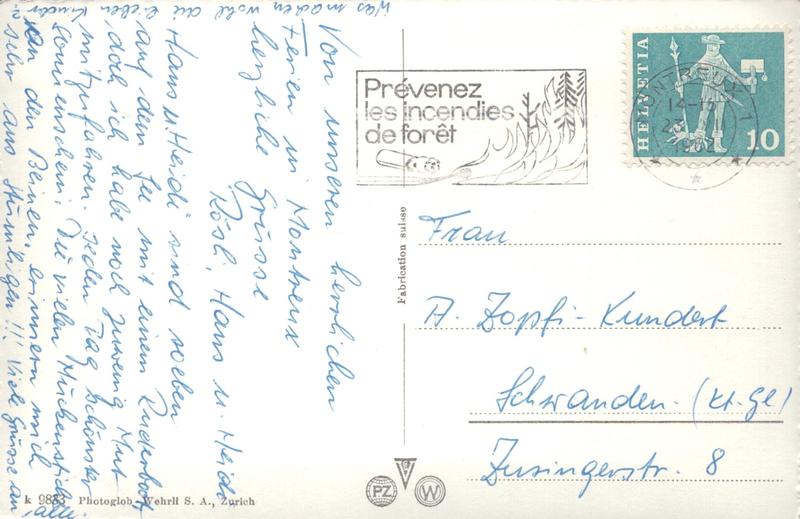 Was machen wohl die lieben Kinder?
Von unseren herrlichen
Ferien in Montreux
herzliche Grüsse
Rösli, Hans u. Heidi
Hans u. Heidi sind soeben
auf dem See mit einem Ruderboot,
doch ich habe noch zuwenig Mut
mitzufahren. Jeden Tag schönster
Sonnenschein. Die vielen Mückenstiche
an den Beinen, erinnern mich
sehr ans Stürmligen!!! Viele Grüsse an alle
Prévenez
les incendies
de forêt
HELVETIA
10
MONTREUX 1
14-
23.
1962
Frau
A. Zopfi-Kundert
Schwanden. (Kt. Gl)
Zusingerstr. 8
Fabrication suisse
k 9883 Photoglob-Wehrli S. A., Zurich
PZ
W